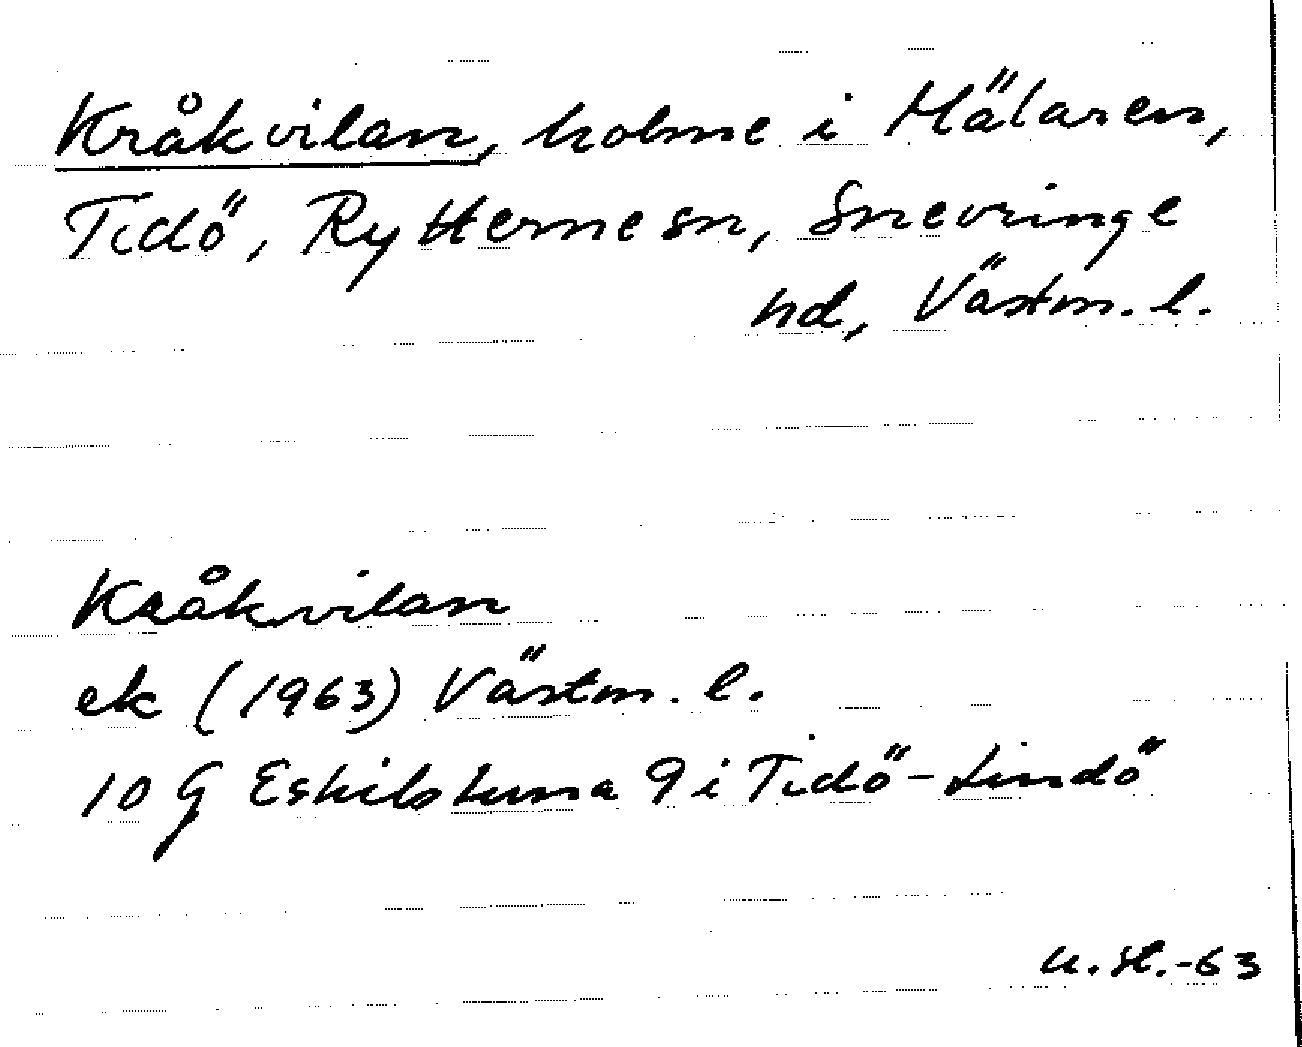 Kråkvilan, holme i Mälaren,
Tidö, Rytterne sn, Snevringe
hd, Västm. l.
Kråkvilan
ek (1963) Västm. l.
10 G Eskilstuna 9 i Tidö-Lindö
u. st.-63